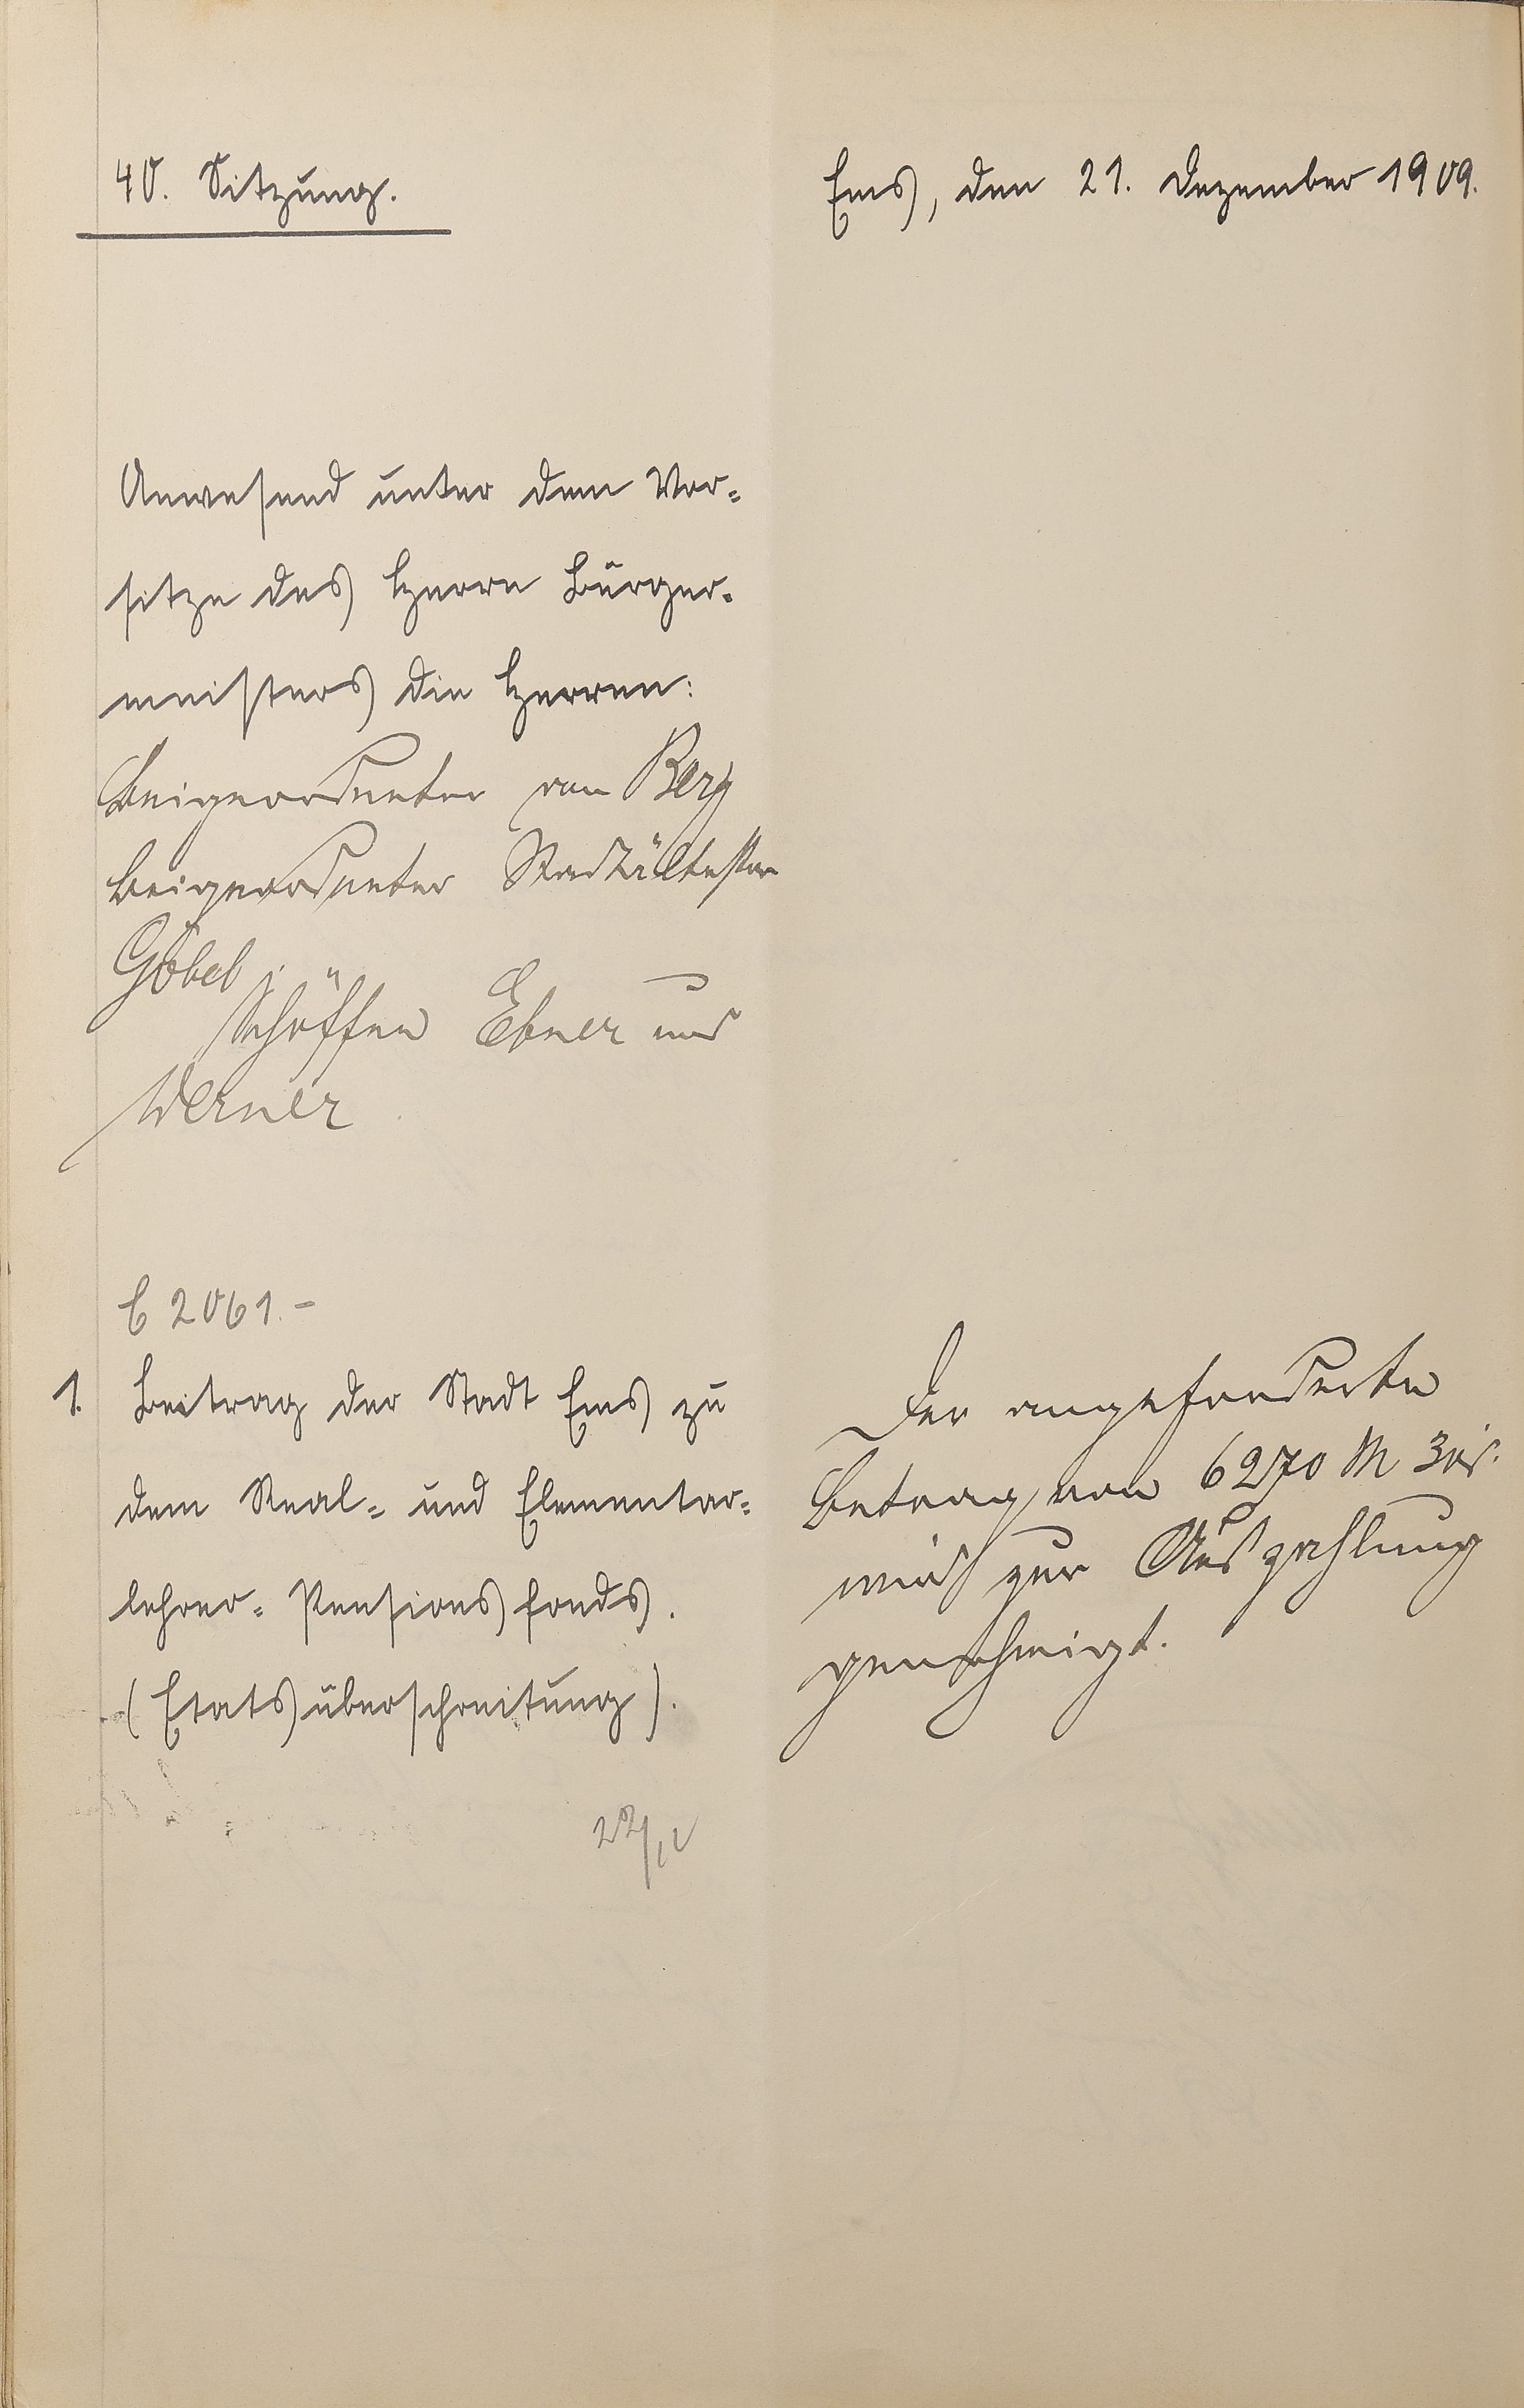 40. Sitzung.
Ems, den 21. Dezember 1909.
Anwesend unter dem Vor-
sitze des Herrn Bürger-
meisters die Herren:
Beigeordneter von Berg
Beigeordneter Stadtältester
Göbel
Schöffen Ebner und
Werner
C 2061.-
1. Beitrag der Stadt Ems zu
dem Real- und Elementar-
lehrer-Pensionsfonds.
(Etatsüberschreitung).
22/12
Der angeforderte
Betrag von 6270 M
wird zur Auszahlung
genehmigt.